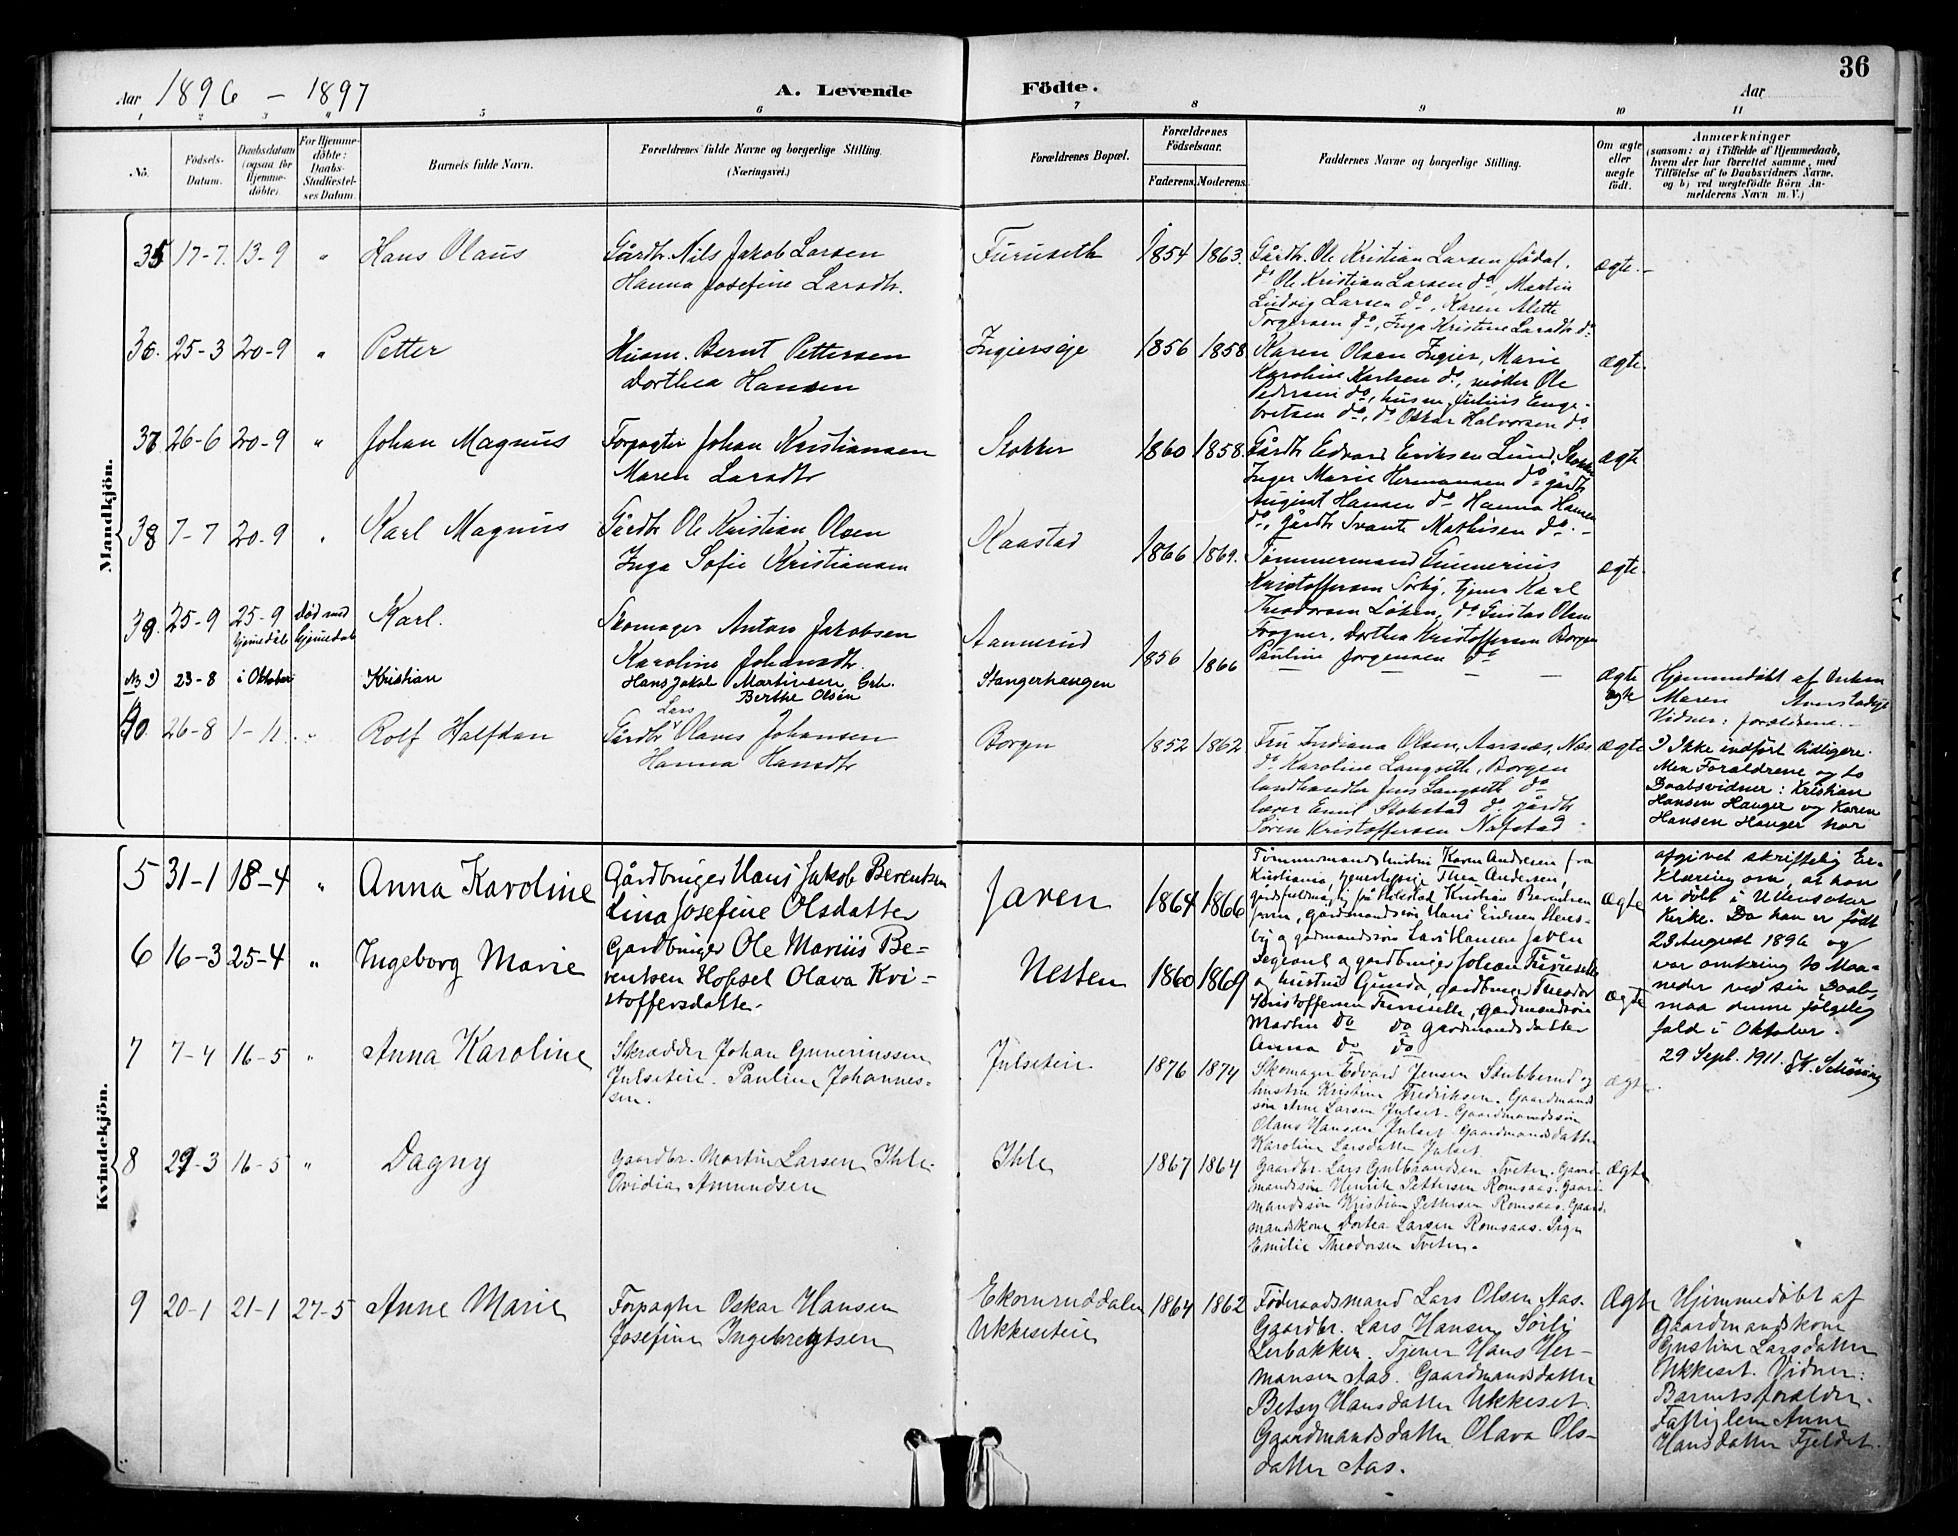 36
Aar 1896 - 1897 A. Levende Födte. Aar
1 2 3 4 5 6 7 8 9 10 11
No.
Födsels-
Datum.
Daabsdatum
(ogsaa for
Hjemme-
döbte).
For Hjemme-
döbte:
Daabs-
Stadfæstel-
ses Datum.
Barnets fulde Navn.
Forældrenes fulde Navne og borgerlige Stilling.
(Næringsvei.)
Forældrenes Bopæl.
Forældrenes
Födselsaar.
Faderens. Moderens.
Faddernes Navne og borgerlige Stilling.
Om ægte
eller
uægte
födt.
Anmærkninger
(saasom: a) i Tilfælde af Hjemmedaab,
hvem der har forrettet samme, med
Tilföielse af to Daabsvidners Navne,
og b) ved uægtefödte Börn An-
melderens Navn m. V.)
Mandkjön.
35 17-7. 13-9 " Hans Olaus
Gårdbr. Nils Jakob Larsen
Hanna Josefine Larsdtr.
Furuseth 1854 1863.
Gårdbr. Ole Kristian Larsen
do Ole Kristian Larsen do, Martin
Ludvig Larsen do, Karen Alette
Torgersen do, Inga Kristine Larsdtr do
ægte.
36. 25-3 20-9 " Petter
Husm. Bernt Pettersen
Dorthea Hansen
Ingierseje 1856 1858
Karen Olsen Ingier, Marie
Karoline Karlsen do, Ole
Pedersen do, husm. Julius Enge-
bretsen do, do Oskar Halvorsen do
ægte.
37 26-6 20-9 " Johan Magnus
Forpagter Johan Kristiansen
Maren Larsdtr
Stokker 1860 1858.
Gårdbr Edvard Eriksen Lund, Stokker
Inger Marie Hermansen do gårdbr
August Hansen do Hanna Hansen
do, gårdbr Svante Mathisen do.
ægte
38 7-7 20-9 " Karl Magnus
Gårdbr Ole Kristian Olsen
Inga Sofie Kristiansen
Kaastad 1866 1869.
Tømmermand Gunnerius
Kristoffersen Sørby, tjener Karl
Theodorsen Løken, do Gustav Olsen
Frogner, Dorthea Kristoffersen Borgen
Pauline Jørgensen do
ægte.
39. 25-9 25-9 hjemmedåb Død med hjemmedåb Karl.
Skomager Anton Jakobsen
Karoline Johansdtr.
Aannerud 1856 1866 - - -
ægte
Hjemmedøbt af Enken
Maren
Vidner: forældrene.
23-8 i Oktober Kristian
Hans Jakob Martinsen Grb.
Berthe Olsen
Stangerhaugen
ægte
40. 26-8 1-11. " Rolf Halfdan
Gårdbr Lars Olaves Johansen
Hanna Hansdtr
Borgen 1852 1862
Fru Indiana Olsen, Aarnæs, Næs
do Karoline Langseth, Borgen
landhandler Jens Langseth do
lærer Emil Stokstad do. gårdbr
Søren Kristoffersen Nafstad
ægte
Ikke indført tidligere.
Men Forældrene og to
Daabsvidner: Kristian
Hansen Hauger og Karen
Hansen Hauger har
afgivet skriftelig Er-
klæring om, at han
er døbt i Ullensaker
Kirke. Da han er født
23 August 1896 og
var omkring to Maa-
neder ved sin Daab,
maa denne følgelig
fald i Oktober.
29 Sept. 1911.
Kvindekjön.
5 31-1 18-4 " Anna Karoline
Gårdbruger Hans Jakob Berentsen
Lina Josefine Olsdatter
Javen 1864 1866
Tømmermandshustru Karen Andresen fra
Kristiania, Thea Andersen,
Kristian Berentsen
Javen, gardmandssøn Hans Eriksen
og gardmandssøn Lars Hansen Javen
ægte
6 16-3 25-4 " Ingeborg Marie
Gardbruger Ole Marius Be-
rentsen Hofsel Olava Kri-
stoffersdatter.
Nesten 1860 1869
Sergeant o gardbruger Johan Furuseth
og hustru Gunda, gardbruger Theodor
Kristoffersen Furuseth, gardmandssøn
Martin do do gardmandsdatter
Anna do do
ægte
7 7-4 16-5 " Anna Karoline
Skrædder Johan Gunerinssen
Julseteie. Pauline Johannes-
sen.
Julseteie 1876 1874
Skomager Edvard Jensen Stubberud og
hustru Kristine Fredriksen. Gaardmands
søn Arne Larsen Julset. Gaardmandssøn
Olaus Hansen Julset Gaardmandsdatter
Karoline Larsdatter Julset
ægte.
8 29-3 16-5 " Dagny
Gaardbr. Martin Larsen Ihle.
Ovidia Amundsen
Ihle 1867 1864
Gaardbr. Lars Gulbrandsen Tveter. Gaard-
mandssøn Henrik Pettersen Romsaas. Gaard-
mandssøn Kristian Pettersen Romsaas. Gaard-
mandskone Dortea Larsen Romsaas. Pige
Emilie Theodorsen Tveter.
Ægte
9 20-1 21-1 27-5 Anne Marie
Forpagter Oskar Hansen
Josefine Ingebregtsen
Ekornruddalen
Ukkeseteie
1864 1862
Føderaadsmand Lars Olsen Aas.
Gaardbr. Lars Hansen Sørli
Lerbakken. Tjener Hans Her-
mansen Aas. Gaardmandsdatter
Betsy Hansdatter Ukkeset.
Gaardmandsdatter Olava Ols-
datter Aas.
Ægte
Hjemmedøbt af
Gaardmandskone
Gustine Larsdatter
Ukkeset. Vidner:
Barnets forældre.
Fattiglem Anne
Hansdatter Fjeldet.